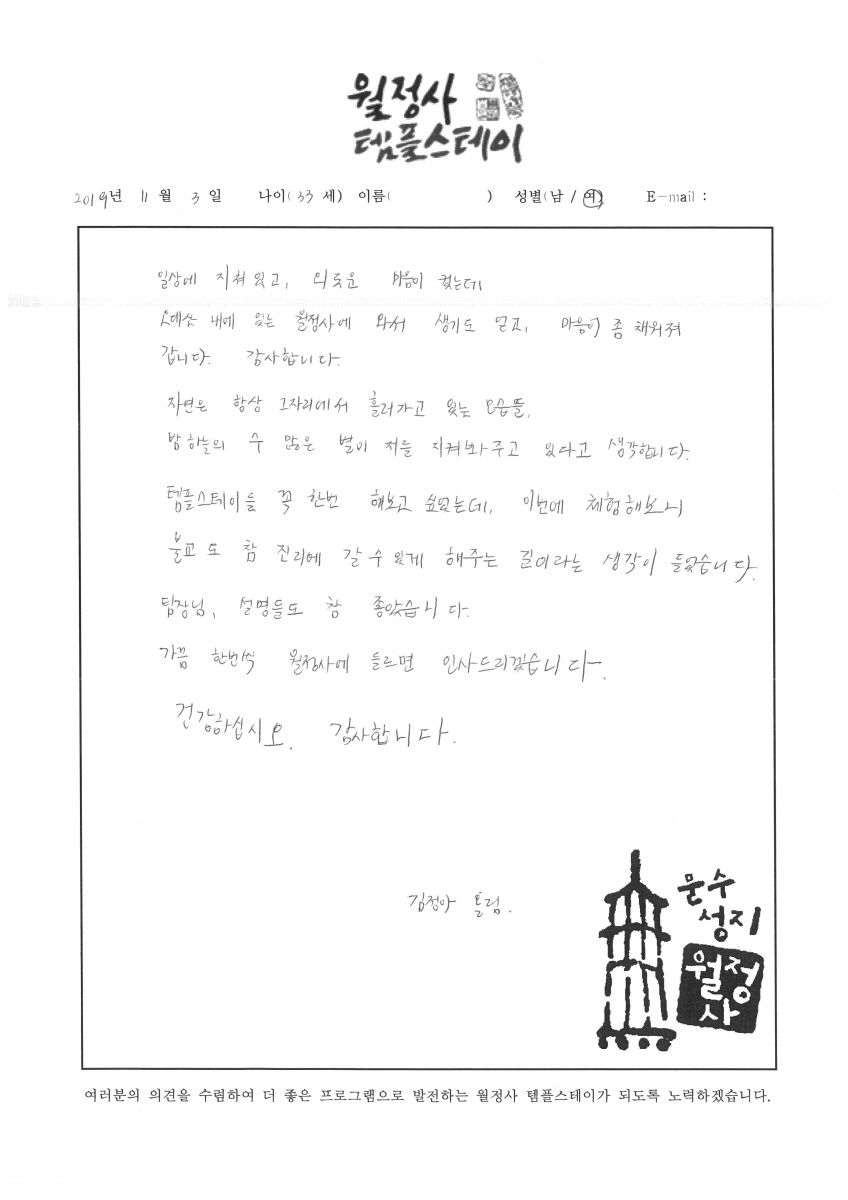 월정사
템플스테이
2019년 11월 3일 나이(33세) 이름( ) 성별(남 / 여) E-mail :
일상에 지쳐 있고, 외로운 마음이 컸는데
오대산 내에 있는 월정사에 와서 생기도 얻고, 마음이 좀 채워져
갑니다. 감사합니다.
자연은 항상 그자리에서 흘러가고 있는 모습들,
밤하늘의 수 많은 별이 저를 지켜봐주고 있다고 생각합니다.
템플스테이를 꼭 한번 해보고 싶었는데, 이번에 체험해보니
불교도 참 진리에 갈 수 있게 해주는 길이라는 생각이 들었습니다.
팀장님, 설명들도 참 좋았습니다.
가끔 한번씩 월정사에 들르면 인사드리겠습니다.
건강하십시오. 감사합니다.
김정아 드림.
문수
성지
월정
사
여러분의 의견을 수렴하여 더 좋은 프로그램으로 발전하는 월정사 템플스테이가 되도록 노력하겠습니다.